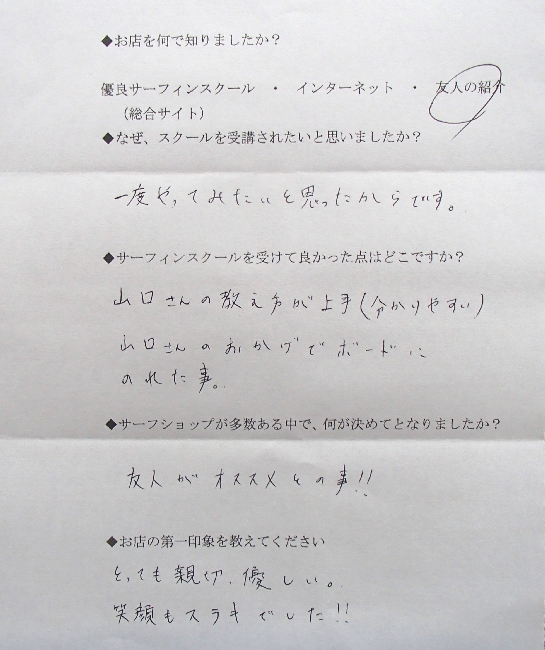 ◆お店を何で知りましたか？
優良サーフィンスクール ・ インターネット ・ 友人の紹介
（総合サイト）
◆なぜ、スクールを受講されたいと思いましたか？
一度やってみたいと思ったからです。
◆サーフィンスクールを受けて良かった点はどこですか？
山口さんの教え方が上手(分かりやすい)
山口さんのおかげでボードに
のれた事。
◆サーフショップが多数ある中で、何が決めてとなりましたか？
友人がオススメとの事!!
◆お店の第一印象を教えてください
とっても親切、優しい。
笑顔もステキでした!!